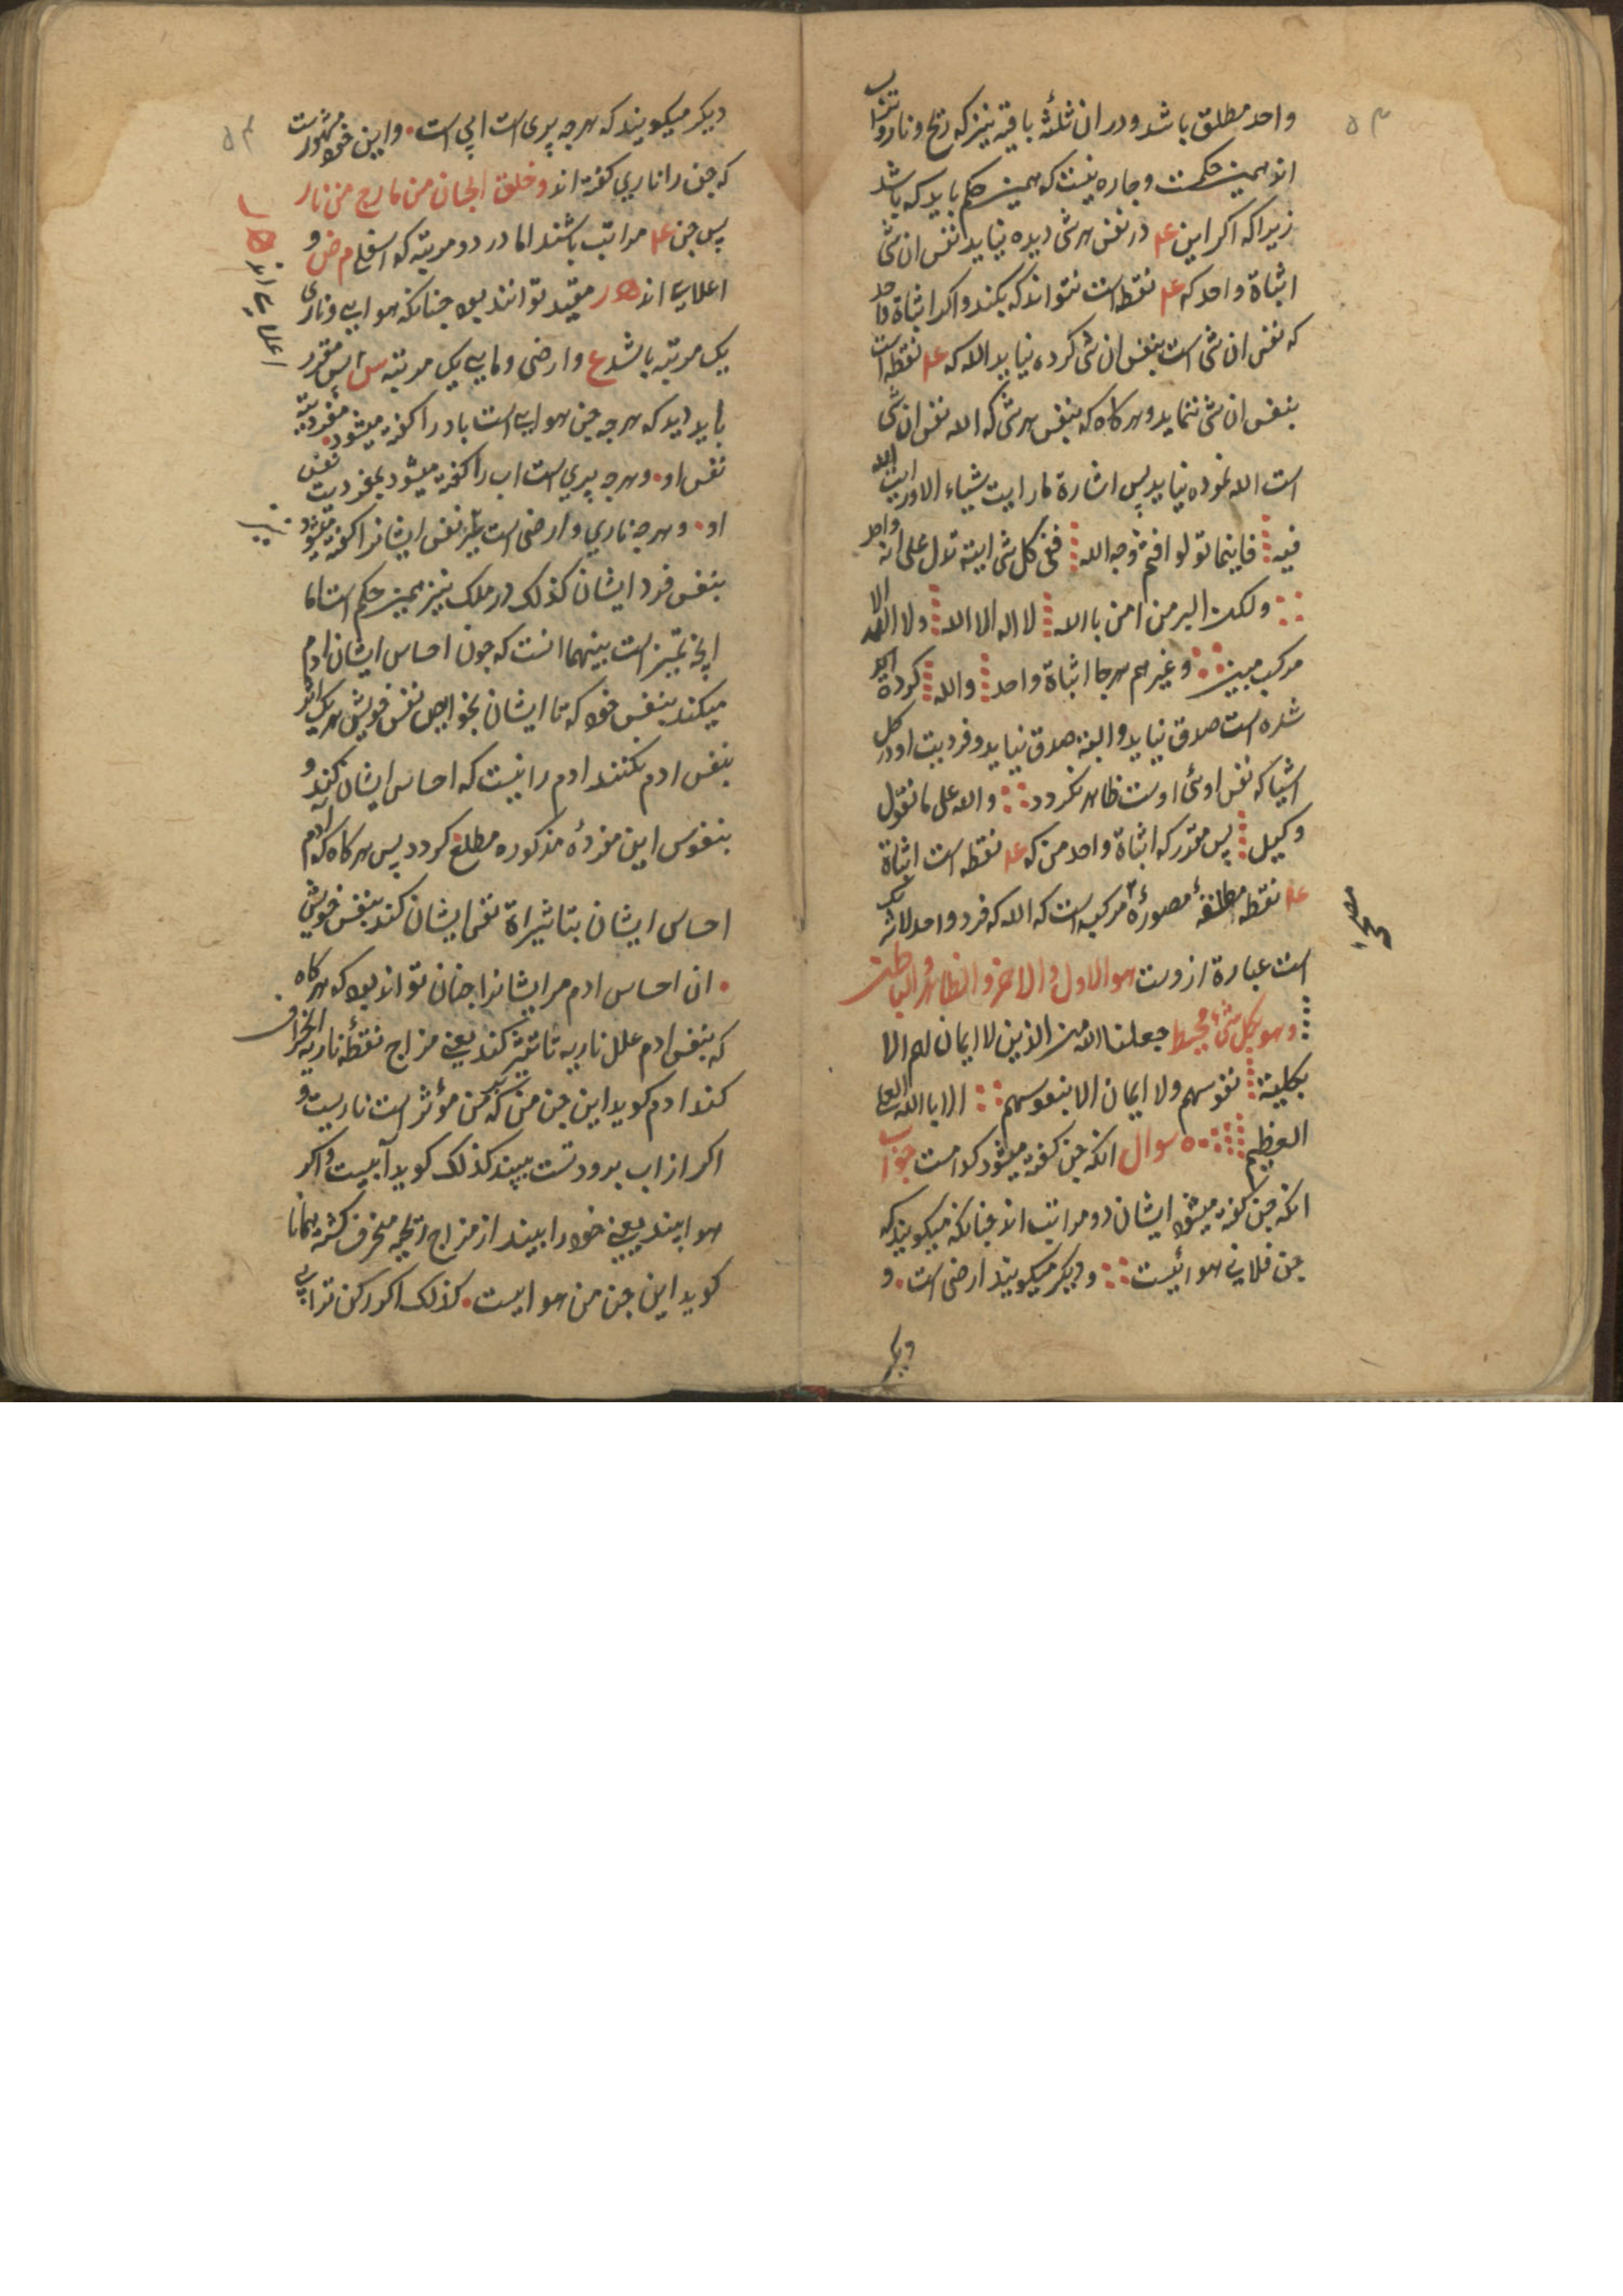 ۵۳
واحد مطلق باشد و در ان ثلثهٔ باقیه نیز که ریح و نار و تراب
اند همین حکمست و چاره نیست که همین حکم باید که باشد
زیرا که اکر این عـ در نفس هر شی دیده نیاید نفس ان شی
اثباة واحد که عـ نقطه است نتواند که بکند و اکر اثباة واحد
که نفس ان شی است بنفس ان شی کرده نیاید الله که عـ نقطه است
بنفس ان شی ننماید و هر کاه که بنفس هر شی که الله نفس ان شی
است الله نموده نیاید پس اشارة ما رایت شیاء الا ورایت الله
فیه فاینما تولوا فثم وجه الله ففی کل شی ایة تدل علی انه واحد
ولکن البر من امن بالله لا اله الا الله ولا اله الا الله
مرکب مبین وغیرهم هر جا اثباة واحد والله کرده
شده است صدق نیاید و البته صدق نیاید و فردیت او در کل
اشیا که نفس اوئ اوست ظاهر نکردد والله علی ما نقول
وکیل پس مقرر که اثباة واحد من که عـ نقطه است اثباة
عـ نقطه مطلقهٔ مصورهٔ مرکبه است که الله که فرد واحد لاشریک
است عبارة ازوست هو الاول والاخر والظاهر والباطن
وهو بکل شیٔ محیط جعلنا الله من الذین لا ایمان لهم الا
بکلیة نفوسهم ولا ایمان الا بنفوسهم الا بالله العلی
العظیم ۵ سوال انکه جن کفته میشود کدامست جواب
انکه جن کفته میشود ایشان دو مراتب اند چنانکه میکویند که
جن فلانی هوائیست و دیکر میکویند ارضی است و
دیکر
۵۴
دیکر میکویند که هرچه پری است ابی است و این خود مشهورست
که جن را ناری کفته اند وخلق الجان من مارج من نار
پس جن عـ مراتب باشند اما در دو مرتبه که اسفلی م ض و
اعلای اند ه ر مقید توانند بود چنانکه هوایی و ناری
یک مرتبه باشد ع و ارضی و مایی یک مرتبه س پس مقرر
باید دید که هرچه جن هوایی است باد را کفته میشود بمفردیت
نفس او و هرچه پری است اب را کفته میشود بمفردیت نفس
او و هرچه ناری و ارضی است نیز نفس ایشانرا کفته میشود
بنفس فرد ایشان کذلک در ملک نیز همین حکم است اما
انچه تمییز است بینهما انست که چون احساس ایشان ادم
میکند بنفس خود که تا ایشان بخواص نفس خویش هر یک اثر
بنفس ادم نکنند ادم را نیست که احساس ایشان کند و
بنفوس این مفردهٔ مذکوره مطلع کردد پس هر کاه که ادم
احساس ایشان بتاثیراة نفس ایشان کند بنفس خویش
ان احساس ادم مر ایشانرا چنان تواند بود که هر کاه
که بنفس ادم علل ناریه تاثیر کند یعنی مزاج نقطهٔ ناریه انحراف
کند ادم کوید این جن من که بمن مؤثر است ناریست و
اکر از اب برودت بیند کذلک کوید آبیست و اکر
هوا بیند یعنی خود را بیند از مزاج ریحیه منحرف کشته همانا
کوید این جن من هوایست کذلک اکر رکن ترابی